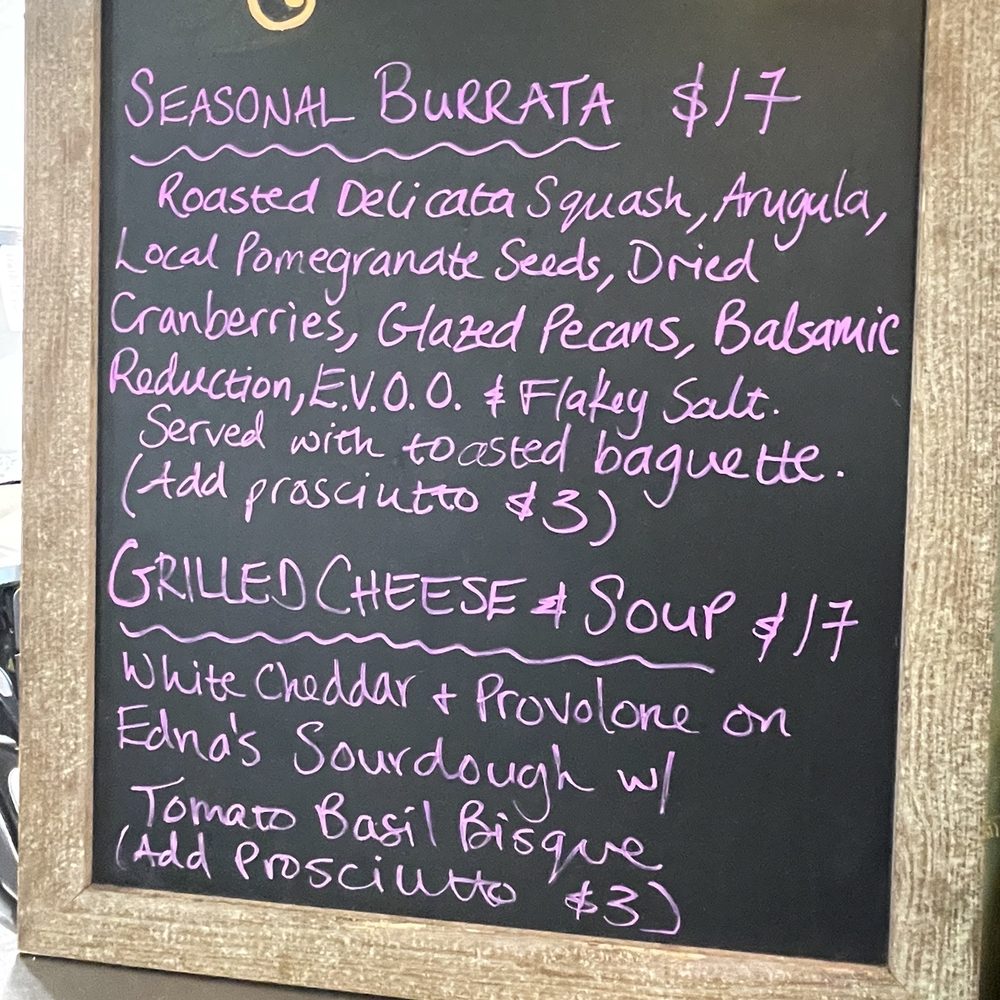 SEASONAL BURRATA $17
Roasted Delicata Squash, Arugula,
Local Pomegranate Seeds, Dried
Cranberries, Glazed Pecans, Balsamic
Reduction, E.V.O.O. & Flakey Salt.
Served with toasted baguette.
(Add prosciutto $3)
GRILLED CHEESE & SOUP $17
White Cheddar + Provolone on
Edna's Sourdough w/
Tomato Basil Bisque
(Add Prosciutto $3)